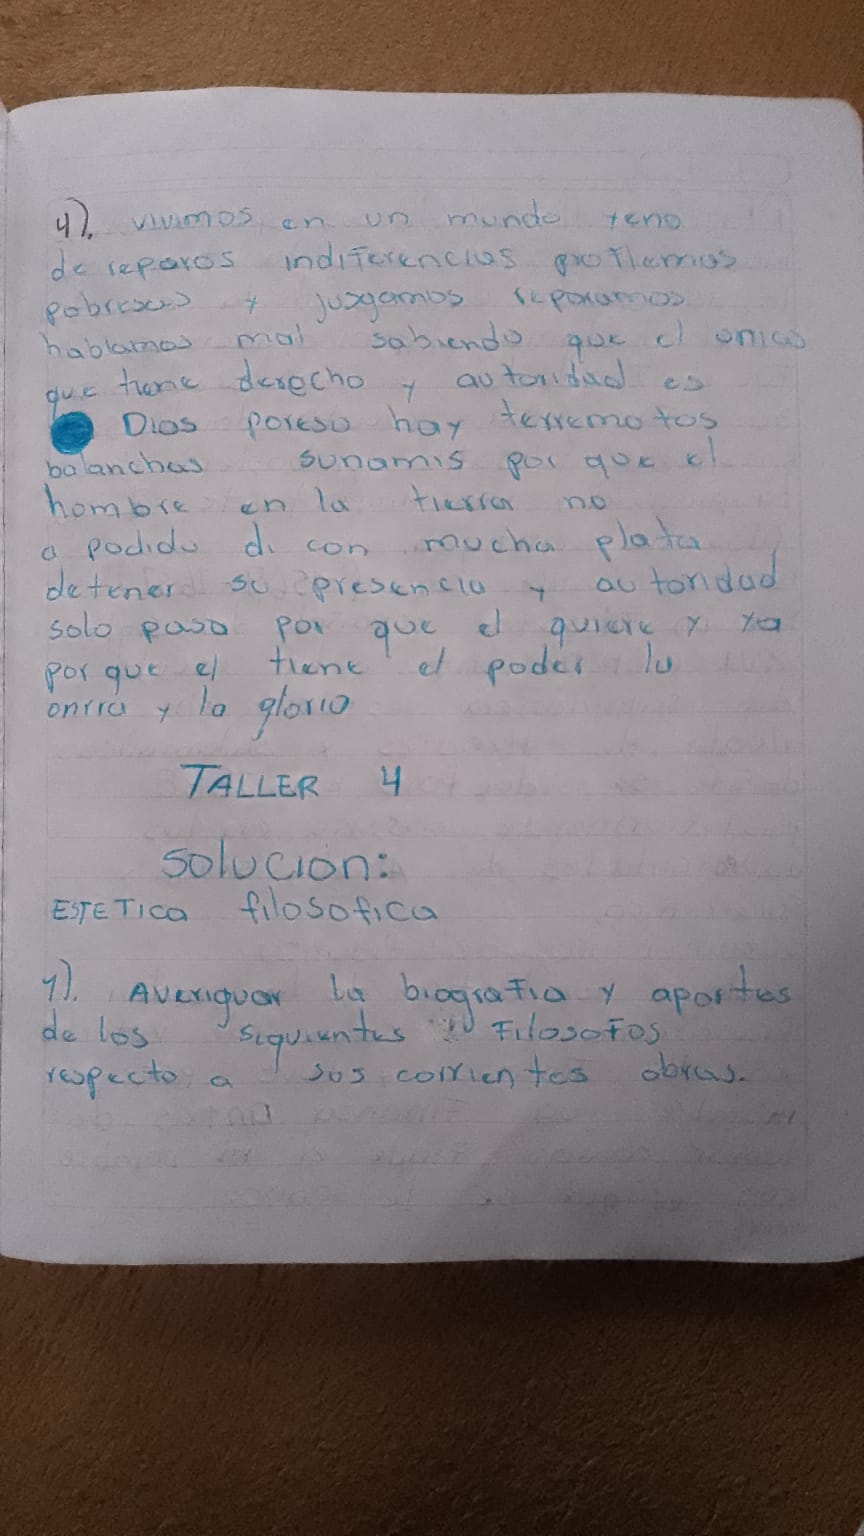 4). vivimos en un mundo yeno
de reparos indiferencias proflemas
pobresas y jusgamos reparamos
hablamos mal sabiendo que el unico
que tiene derecho y autoridad es
Dios poreso hay terremotos
balanchas sunamis por que el
hombre en la tierra no
a podido di con mucha plata
detener su presencia y autoridad
solo pasa por que el quiere y ya
por que el tiene el poder la
onrra y la gloria
TALLER 4
Solucion:
ESTETICA filosofica
1). Averiguar la biografia y aportes
de los siguientes Filosofos
respecto a sus corrientes obras.